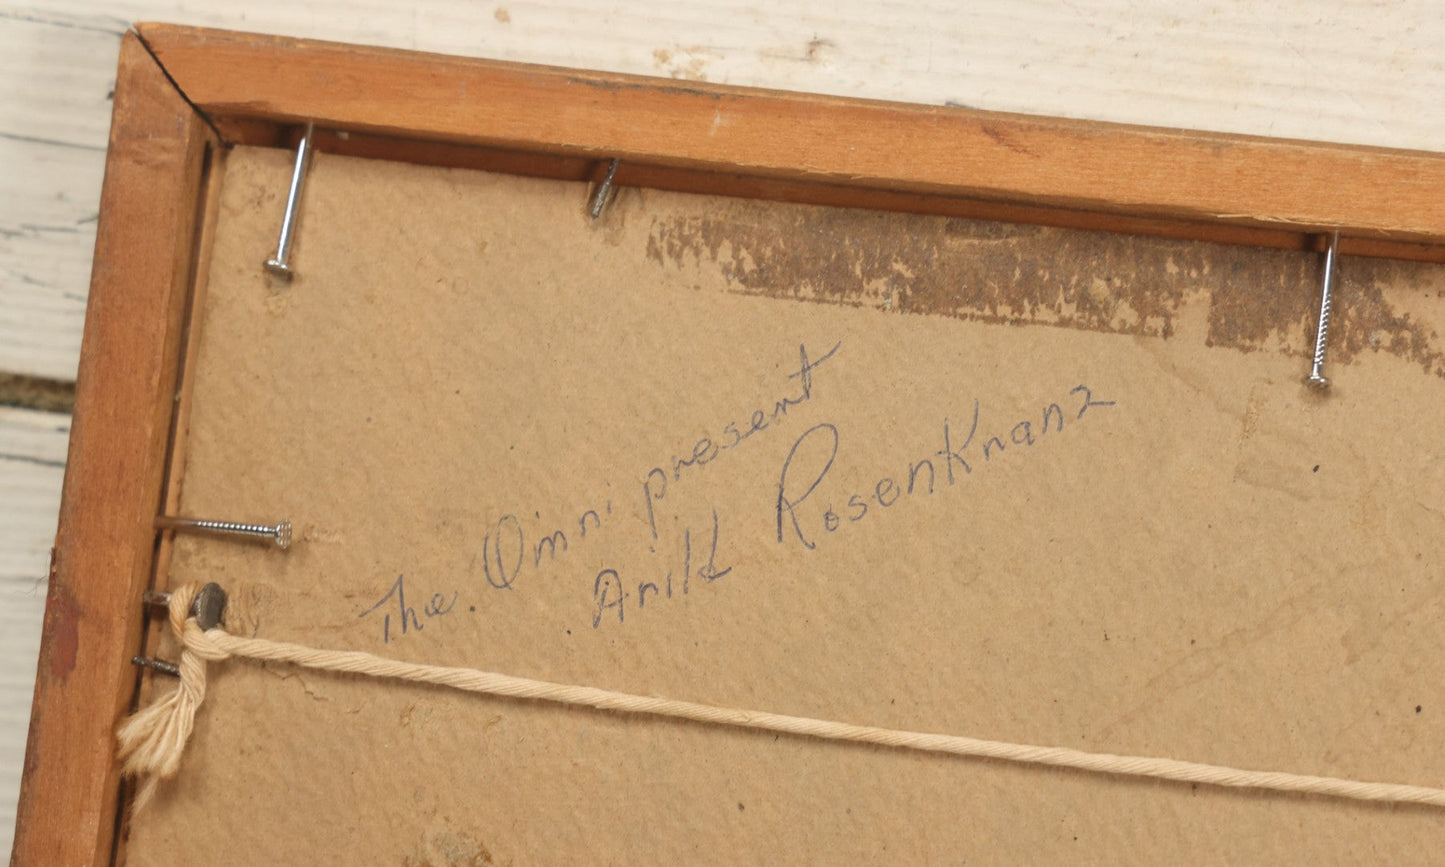 The Omni present
Arild RosenKranz